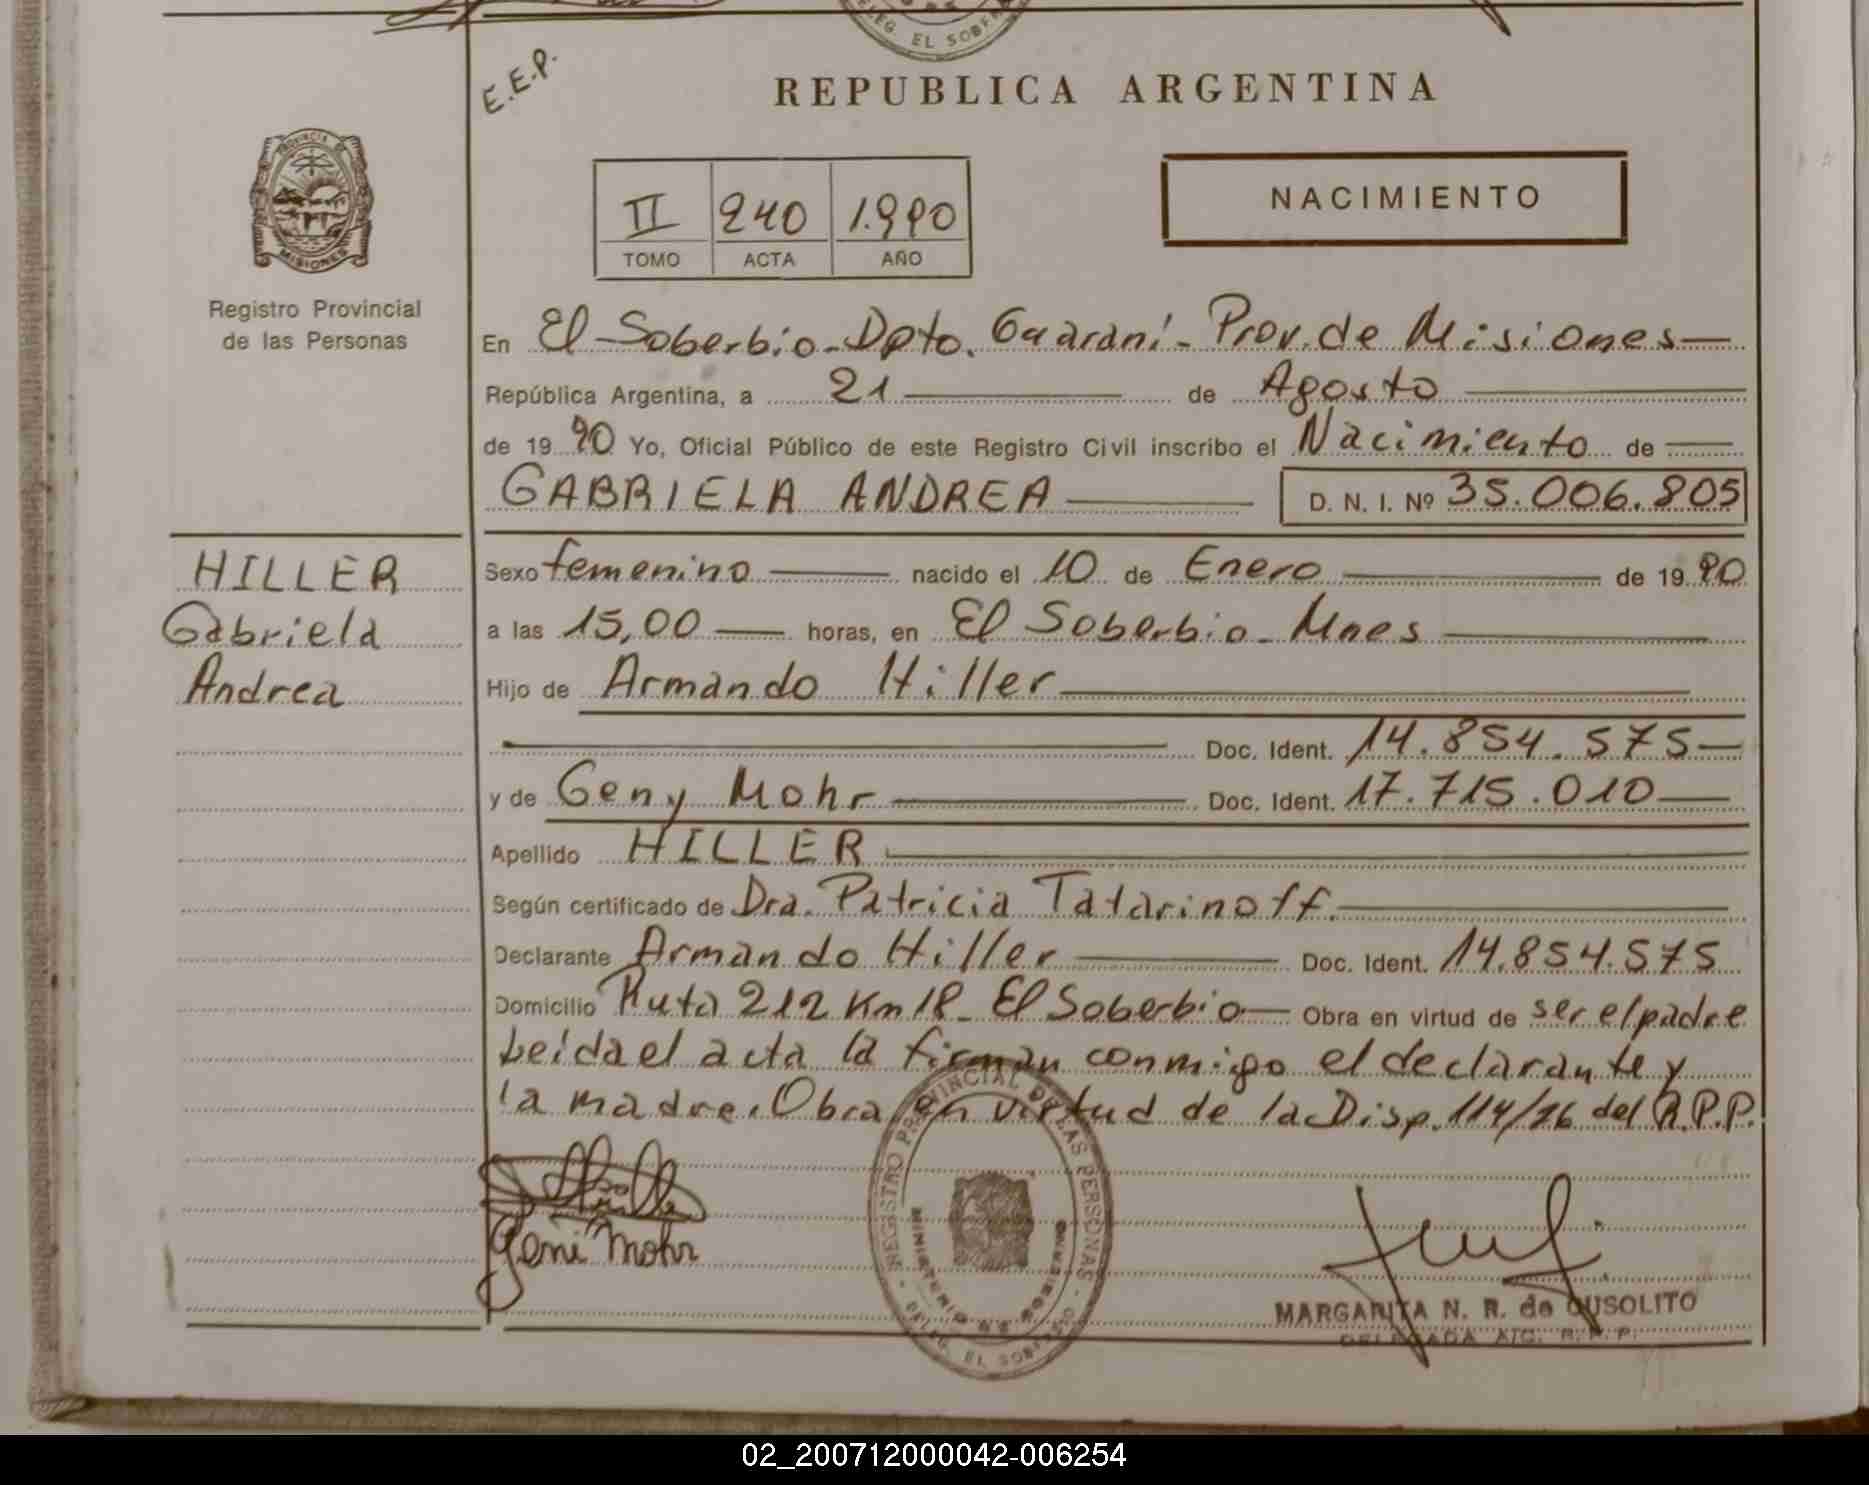 DELEG. EL SOBERBIO
E.E.P.
REPUBLICA ARGENTINA
PROVINCIA DE
MISIONES
Registro Provincial
de las Personas
II 240 1.990
TOMO ACTA AÑO
NACIMIENTO
En El Soberbio - Dpto. Guaraní - Prov. de Misiones
República Argentina, a 21 de Agosto
de 1990 Yo, Oficial Público de este Registro Civil inscribo el Nacimiento de
GABRIELA ANDREA D. N. I. Nº 35.006.805
HILLER
Gabriela
Andrea
Sexo femenino nacido el 10 de Enero de 1990
a las 15,00 horas, en El Soberbio - Mnes
Hijo de Armando Hiller
Doc. Ident. 14.854.575
y de Geny Mohr Doc. Ident. 17.715.010
Apellido HILLER
Según certificado de Dra. Patricia Tatarinoff.
Declarante Armando Hiller Doc. Ident. 14.854.575
Domicilio Ruta 212 Km 18 - El Soberbio Obra en virtud de ser el padre
Leida el acta la firman conmigo el declarante y
la madre. Obra en virtud de la Disp. 114/76 del R.P.P.
REGISTRO PROVINCIAL DE LAS PERSONAS
MINISTERIO DE GOBIERNO
DELEG. EL SOBERBIO
Geni Mohr
MARGARITA N. R. de CUSOLITO
DELEGADA R. P. P.
02_200712000042-006254